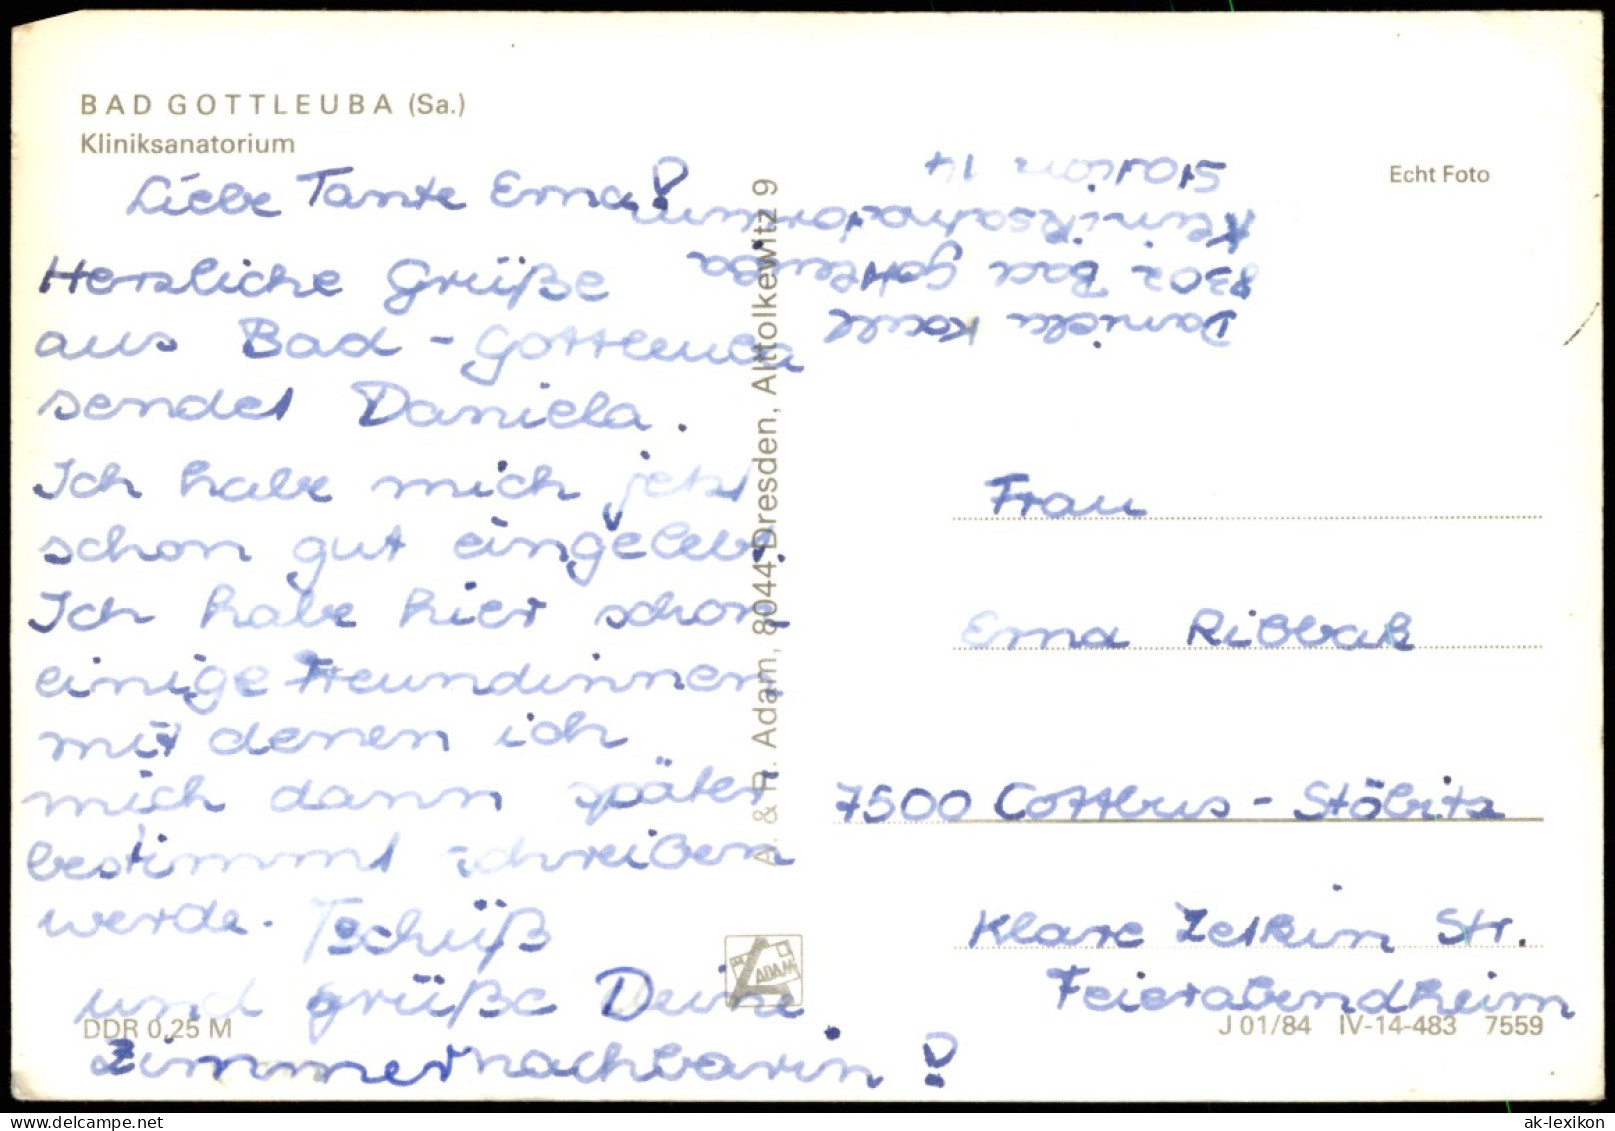 BAD GOTTLEUBA (Sa.)
Kliniksanatorium
Liebe Tante Erna!
Herzliche Grüße
aus Bad-Gottleuba
sendet Daniela.
Ich habe mich jetzt
schon gut eingelebt.
Ich habe hier schon
einige Freundinnen
mit denen ich
mich dann später
bestimmt schreiben
werde. Tschüß
und grüße Deine
Zimmernachbarin!
DDR 0,25 M
A. & R. Adam, 8044 Dresden, Altlolkewitz 9
ADAM
Echt Foto
Daniela
8302 Bad Gottleuba
Kliniksanatorium
Station 14
Frau
Erna Ribbak
7500 Cottbus - Ströbitz
Klare Zetkin Str.
Feierabendheim
J 01/84 IV-14-483 7559
ak-lexikon